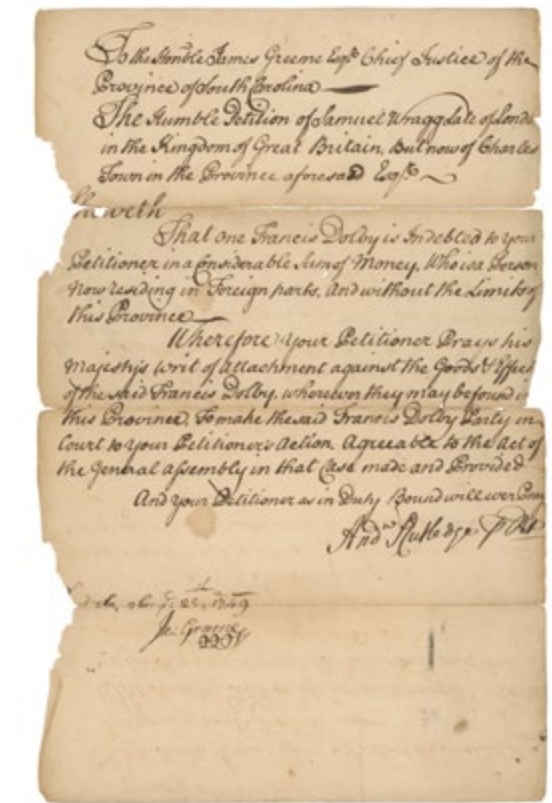 To the Honble James Greeme Esqr. Chief Justice of the
Province of South Carolina
The Humble Petition of Samuel Wragg Late of Lond
in the Kingdom of Great Britain, But now of Charles
Town in the Province aforesaid Esqr.
Sheweth
That one Francis Dolby is Indebted to your
Petitioner in a Considerable Sum of Money, Who is a Person
Now residing in Foreign parts, And without the Limits of
this Province
Wherefore your Petitioner Prays his
Majesty's writ of attachment against the Goods & Effects
of the said Francis Dolby, wherever they may be found in
this Province, To make the said Francis Dolby Party in
Court to Your Petitioner's Action, Agreeable to the Act of
the General assembly in that Case made and Provided
And your Petitioner as in Duty Bound will ever Pray
Andw Rutledge
25th 1749
Ja: Greeme